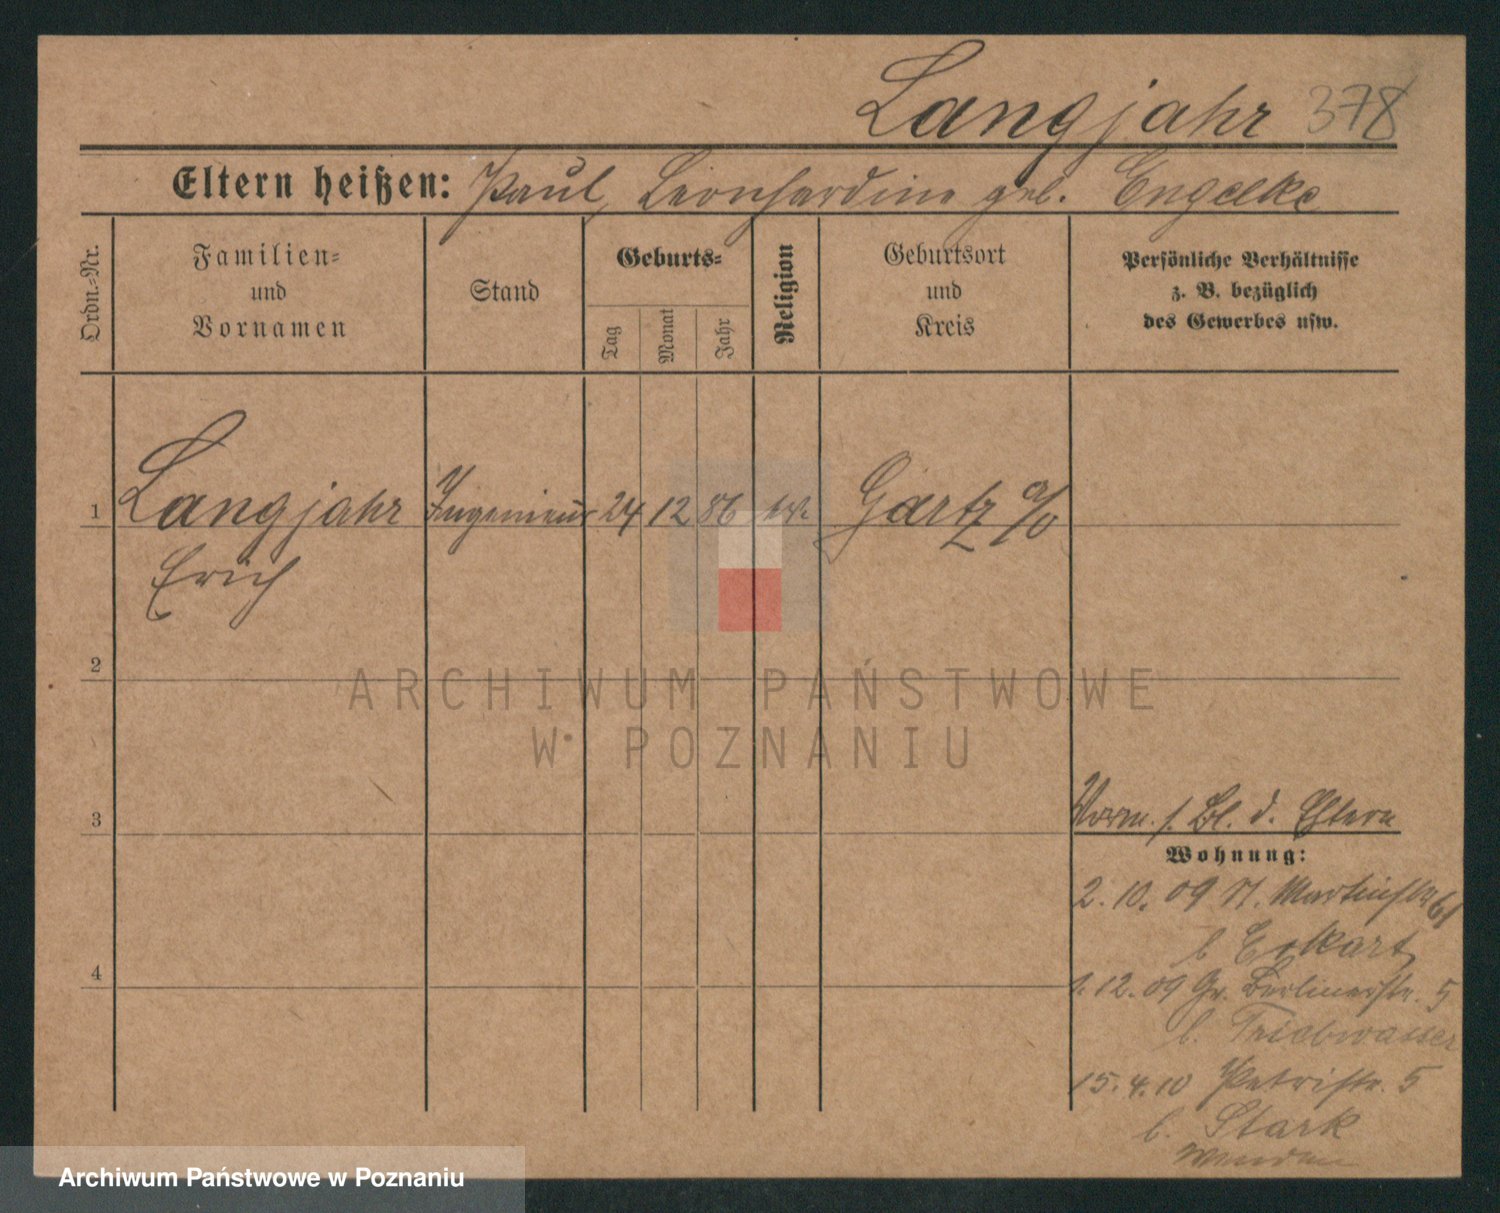 Langjahr 378
Eltern heißen: Paul, Leonhardine geb. Engelke
Ordn.-Nr.
Familien-
und
Vornamen
Stand
Geburts-
Tag
Monat
Jahr
Religion
Geburtsort
und
Kreis
Persönliche Verhältnisse
z. B. bezüglich
des Gewerbes usw.
1 Langjahr Ingenieur 24 12 86 ev. Gartz a/O
Erich
2
ARCHIWUM PAŃSTWOWE
W POZNANIU
3
Verm. s. Bl. d. Eltern
Wohnung:
2. 10. 09 St. Martinstr 61
b Eckart
4
1. 12. 09 Gr. Berlinerstr. 5
b. Triebwasser
15. 4. 10 Petristr. 5
b. Stark
Archiwum Państwowe w Poznaniu